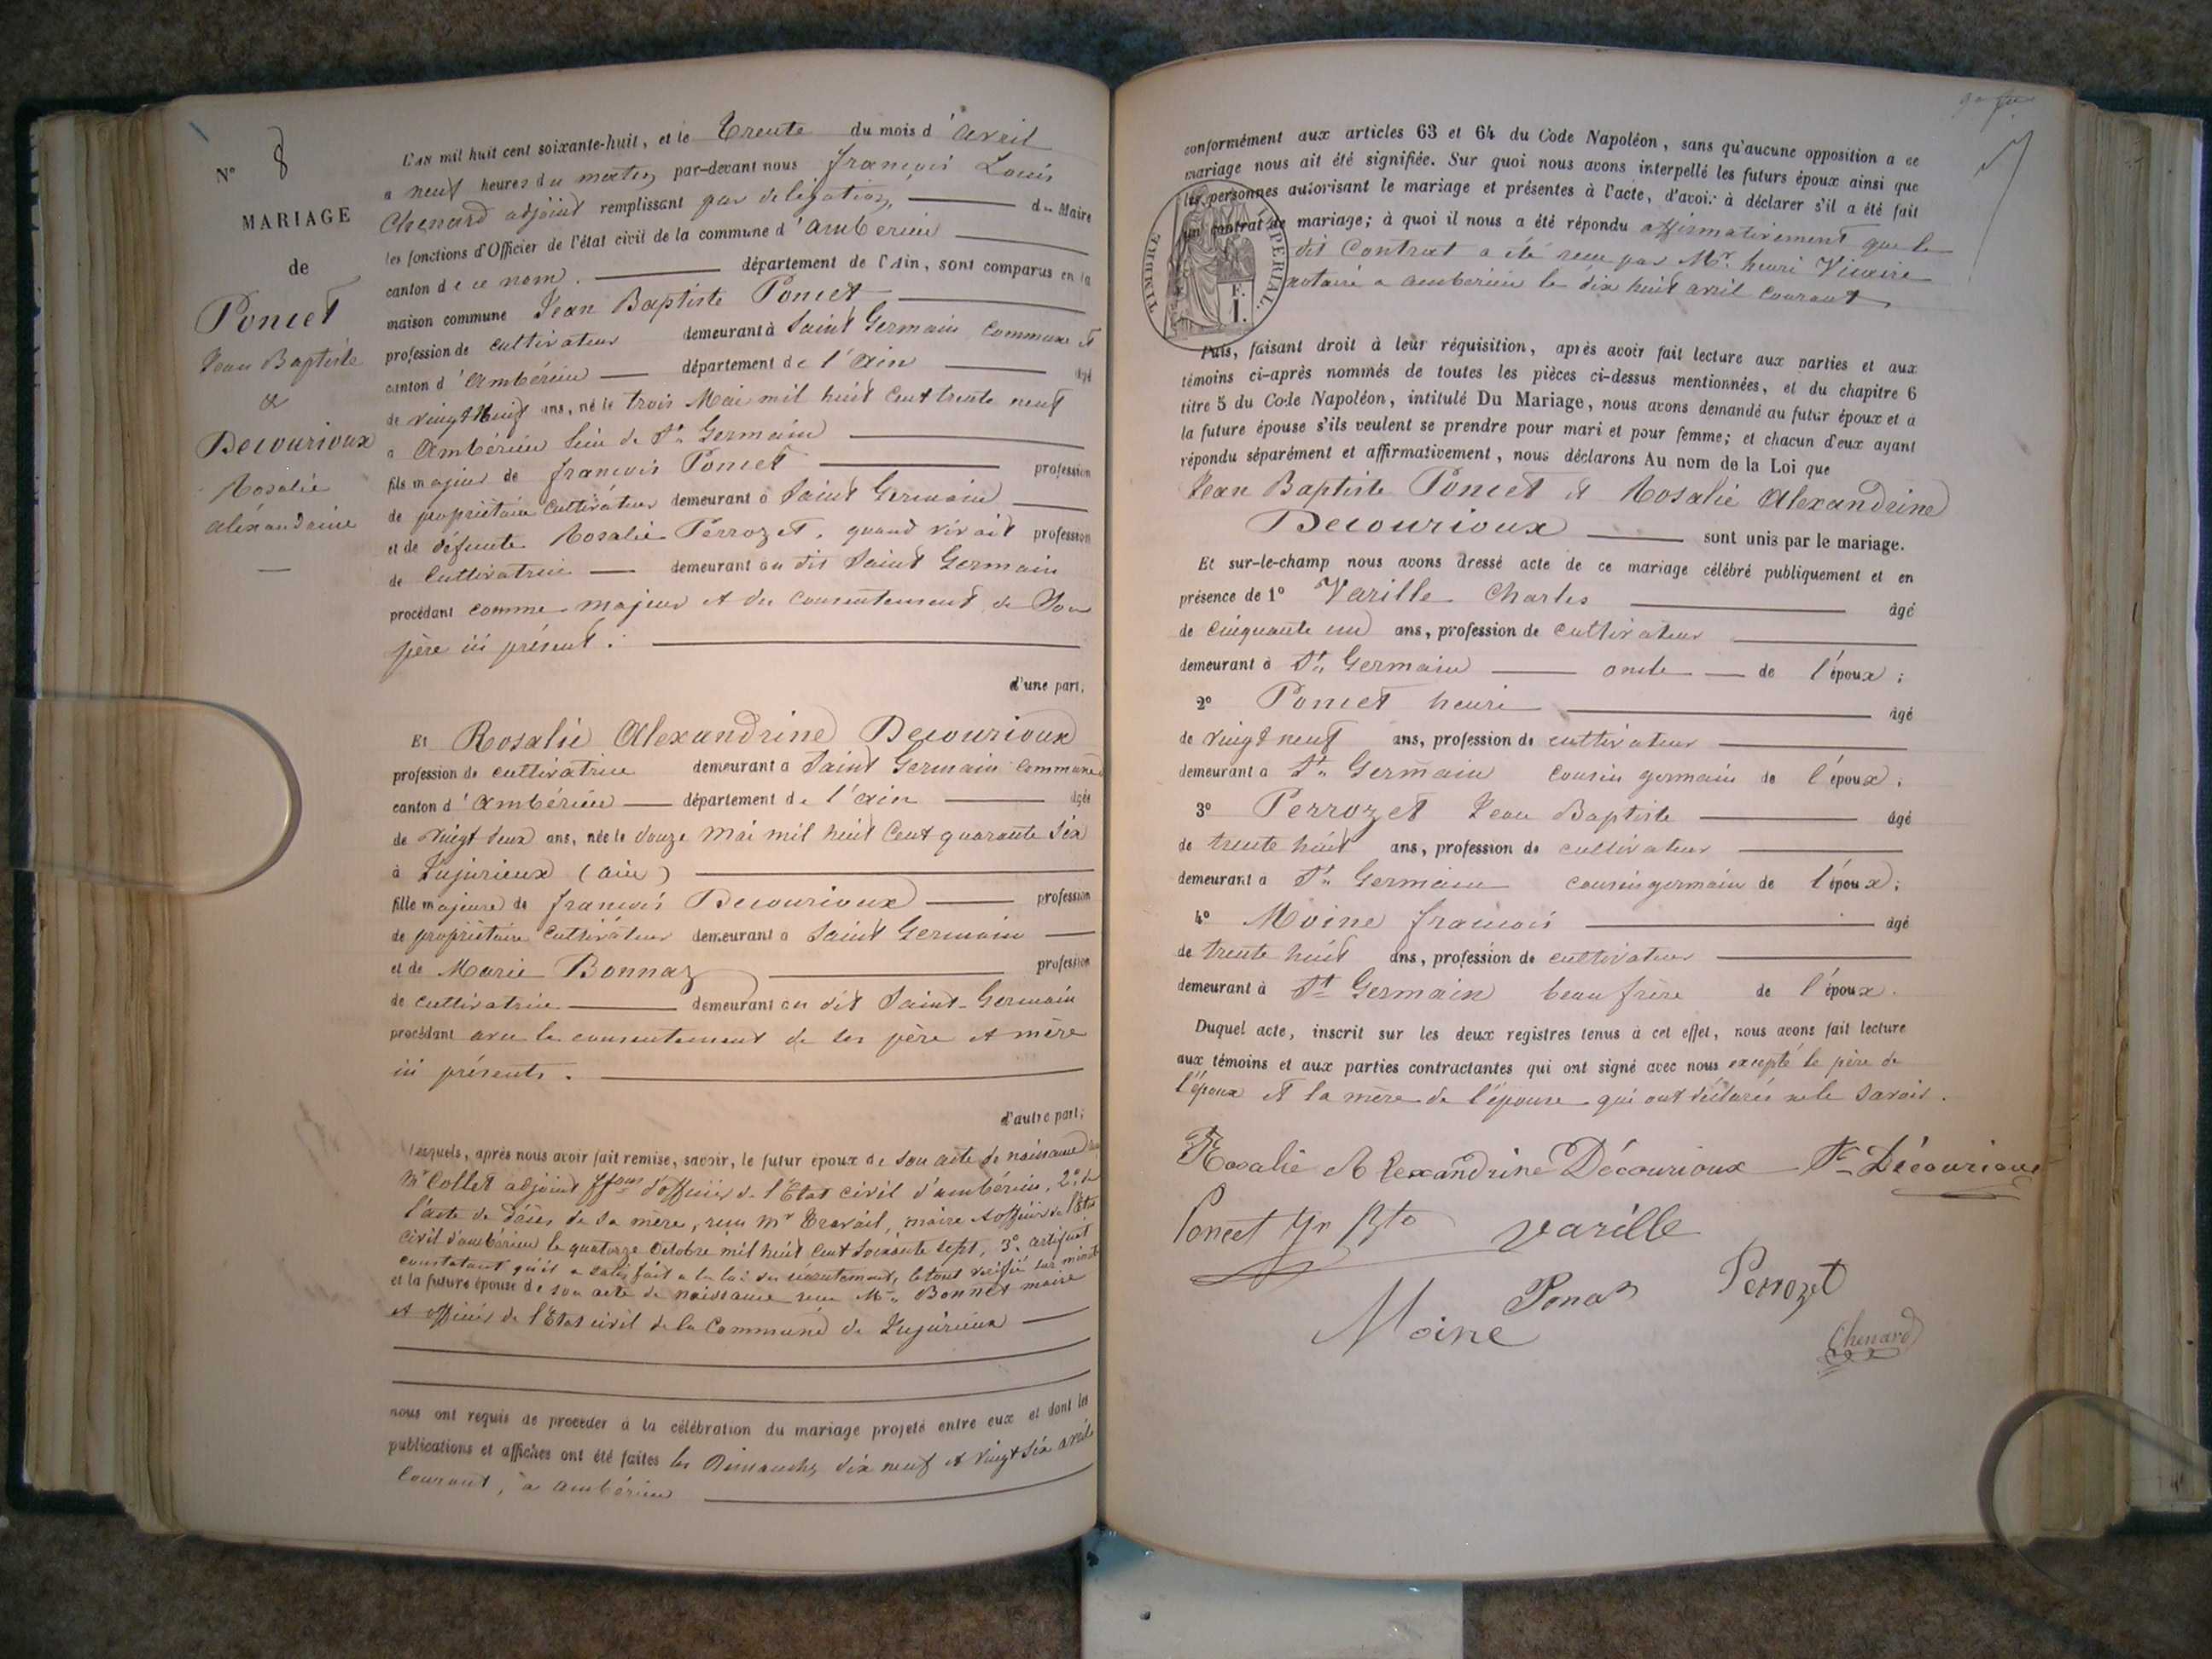 N° 8
MARIAGE
de
Poncet
Jean Baptiste
&
Decourioux
Rosalie
alexandrine
L'AN mil huit cent soixante-huit, et le Trente du mois d'avril
a neuf heures du matin, par-devant nous françois Louis
Chenard adjoint remplissant par délégation, du Maire
les fonctions d'Officier de l'état civil de la commune d'ambérieu
canton de ce nom. département de l'Ain, sont comparus en la
maison commune Jean Baptiste Poncet
profession de cultivateur demeurant à Saint Germain commune et
canton d'ambérieu département de l'ain âgé
de vingt huit ans, né le trois Mai mil huit cent trente neuf
a Ambérieu lieu de St Germain
fils majeur de françois Poncet profession
de propriétaire cultivateur demeurant à Saint Germain
et de défunte Rosalie Perrozet, quand vivait profession
de cultivatrice demeurant au dit Saint Germain
procédant comme majeur et du consentement de son
père ici présent.
d'une part,
Et Rosalie Alexandrine Decourioux
profession de cultivatrice demeurant a Saint Germain commune
canton d'ambérieu département de l'ain âgée
de vingt deux ans, née le douze mai mil huit cent quarante six
à Jujurieux (ain)
fille majeure de françois Decourioux profession
de propriétaire cultivateur demeurant a Saint Germain
et de Marie Bonnaz profession
de cultivatrice demeurant au dit Saint-Germain
procédant avec le consentement de ses père et mère
ici présents.
d'autre part;
Lesquels, après nous avoir fait remise, savoir, le futur époux de son acte de naissance
Mr Collet adjoint ffons d'officier de l'État civil d'ambérieu, 2° de
l'acte de décès de sa mère, reçu mr Travail, maire et officier de l'État
civil d'ambérieu le quatorze octobre mil huit cent soixante sept, 3° certificat
constatant qu'il a satisfait a la loi du recrutement, le tout vérifié sur minute
et la future épouse de son acte de naissance reçu Mr Bonnet maire
et officier de l'État civil de la Commune de Jujurieux
nous ont requis de proceder à la célébration du mariage projeté entre eux et dont les
publications et affiches ont été faites les Dimanches dix neuf et vingt six avril
courant, à ambérieu
conformément aux articles 63 et 64 du Code Napoléon, sans qu'aucune opposition a ce
mariage nous ait été signifiée. Sur quoi nous avons interpellé les futurs époux ainsi que
les personnes autorisant le mariage et présentes à l'acte, d'avoir à déclarer s'il a été fait
un contrat de mariage; à quoi il nous a été répondu affirmativement que le
dit Contrat a été reçu par Mr. henri Vicaire
notaire a ambérieu le dix huit avril courant
TIMBRE IMPERIAL.
F.
1.
Puis, faisant droit à leur réquisition, après avoir fait lecture aux parties et aux
témoins ci-après nommés de toutes les pièces ci-dessus mentionnées, et du chapitre 6
titre 5 du Code Napoléon, intitulé Du Mariage, nous avons demandé au futur époux et a
la future épouse s'ils veulent se prendre pour mari et pour femme; et chacun d'eux ayant
répondu séparément et affirmativement, nous déclarons Au nom de la Loi que
Jean Baptiste Poncet et Rosalie Alexandrine
Decourioux sont unis par le mariage.
Et sur-le-champ nous avons dressé acte de ce mariage célébré publiquement et en
présence de 1° Varille Charles âgé
de cinquante un ans, profession de cultivateur
demeurant à St Germain oncle de l'époux;
2° Poncet henri âgé
de vingt neuf ans, profession de cultivateur
demeurant a St Germain cousin germain de l'époux;
3° Perrozet Jean Baptiste âgé
de trente huit ans, profession de cultivateur
demeurant a St Germain cousin germain de l'époux;
4° Moine francois âgé
de trente huit ans, profession de cultivateur
demeurant à St Germain beau frère de l'époux.
Duquel acte, inscrit sur les deux registres tenus à cet effet, nous avons fait lecture
aux témoins et aux parties contractantes qui ont signé avec nous excepté le père de
l'époux et la mère de l'épouse qui ont déclarés ne le savoir.
Rosalie Alexandrine Décourioux Fr Décourioux
Poncet Jn Bte varille
Moine Perrozet
Chenard